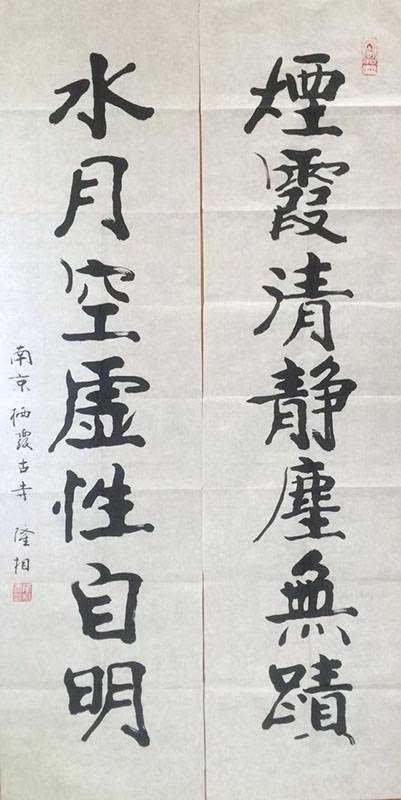 煙霞清静塵無蹟
水月空虛性自明
南京栖霞古寺 隆相